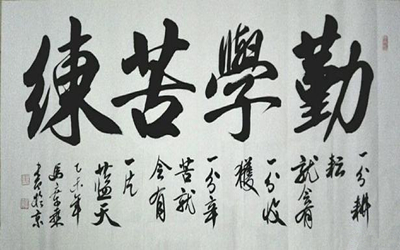 勤學苦練
一分耕
耘
就會有
一分收
獲
一分辛
苦就
會有
一片
藍天
乙未年
於京